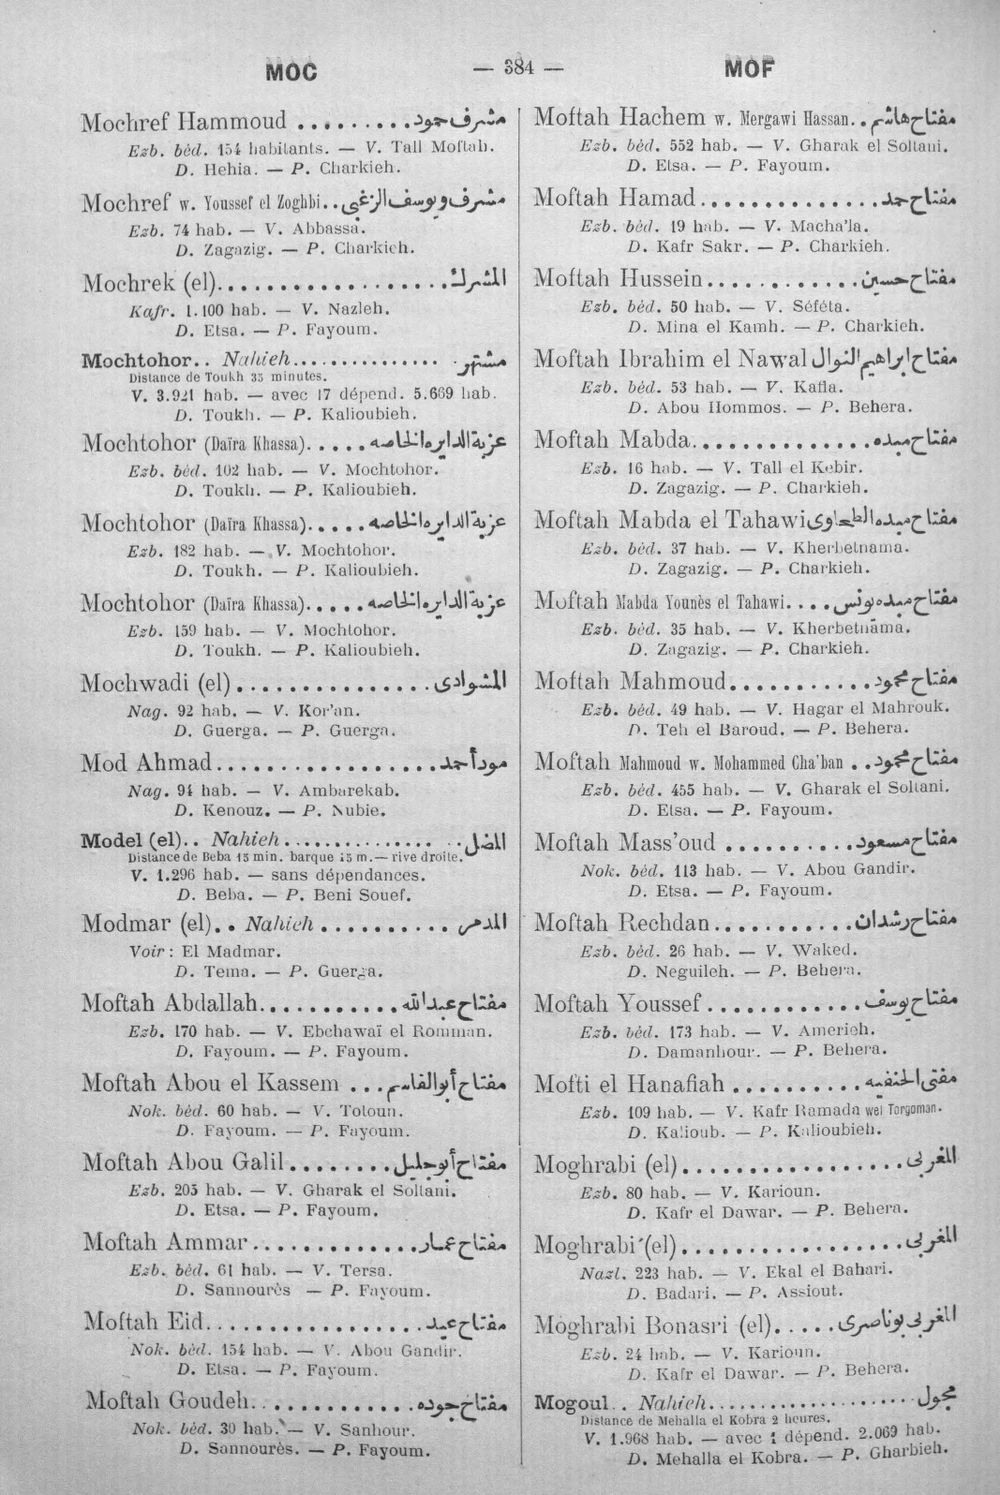 MOC — 384 — MOF
Mochref Hammoud .......... مشرف حمود
Ezb. béd. 154 habitants. — V. Tall Moftah.
D. Hehia. — P. Charkieh.
Mochref w. Youssef el Zoghbi.. مشرف ويوسف الزغبي
Ezb. 74 hab. — V. Abbassa.
D. Zagazig. — P. Charkieh.
Mochrek (el).................. المشرك
Kafr. 1.100 hab. — V. Nazleh.
D. Etsa. — P. Fayoum.
Mochtohor.. Nahieh............... مشتهر
Distance de Toukh 35 minutes.
V. 3.921 hab. — avec 17 dépend. 5.669 hab.
D. Toukh. — P. Kalioubieh.
Mochtohor (Daïra Khassa)..... عزبة الدايره الخاصه
Ezb. béd. 102 hab. — V. Mochtohor.
D. Toukh. — P. Kalioubieh.
Mochtohor (Daïra Khassa)..... عزبة الدايره الخاصه
Ezb. 182 hab. — V. Mochtohor.
D. Toukh. — P. Kalioubieh.
Mochtohor (Daïra Khassa)..... عزبة الدايره الخاصه
Ezb. 159 hab. — V. Mochtohor.
D. Toukh. — P. Kalioubieh.
Mochwadi (el)............... المشوادى
Nag. 92 hab. — V. Kor'an.
D. Guerga. — P. Guerga.
Mod Ahmad................. مود أحمد
Nag. 94 hab. — V. Ambarekab.
D. Kenouz. — P. Nubie.
Model (el).. Nahieh ................ المضل
Distance de Beba 15 min. barque 15 m. — rive droite.
V. 1.296 hab. — sans dépendances.
D. Beba. — P. Beni Souef.
Modmar (el).. Nahieh .......... المدمر
Voir : El Madmar.
D. Tema. — P. Guerga.
Moftah Abdallah........... مفتاح عبدالله
Ezb. 170 hab. — V. Ebchawaï el Romman.
D. Fayoum. — P. Fayoum.
Moftah Abou el Kassem ... مفتاح أبوالقاسم
Nok. béd. 60 hab. — V. Totoun.
D. Fayoum. — P. Fayoum.
Moftah Abou Galil........ مفتاح أبوجليل
Ezb. 205 hab. — V. Gharak el Soltani.
D. Etsa. — P. Fayoum.
Moftah Ammar............. مفتاح عمار
Ezb. béd. 61 hab. — V. Tersa.
D. Sannourès — P. Fayoum.
Moftah Eid................. مفتاح عيد
Nok. béd. 154 hab. — V. Abou Gandir.
D. Etsa. — P. Fayoum.
Moftah Goudeh............. مفتاح جوده
Nok. béd. 30 hab. — V. Sanhour.
D. Sannourès. — P. Fayoum.
Moftah Hachem w. Mergawi Hassan.. مفتاح هاشم
Ezb. béd. 552 hab. — V. Gharak el Soltani.
D. Etsa. — P. Fayoum.
Moftah Hamad.............. مفتاح حمد
Ezb. béd. 19 hab. — V. Macha'la.
D. Kafr Sakr. — P. Charkieh.
Moftah Hussein............ مفتاح حسين
Ezb. béd. 50 hab. — V. Séféta.
D. Mina el Kamh. — P. Charkieh.
Moftah Ibrahim el Nawal مفتاح ابراهيم النوال
Ezb. béd. 53 hab. — V. Kafla.
D. Abou Hommos. — P. Behera.
Moftah Mabda.............. مفتاح مبده
Ezb. 16 hab. — V. Tall el Kebir.
D. Zagazig. — P. Charkieh.
Moftah Mabda el Tahawi مفتاح مبده الطحاوى
Ezb. béd. 37 hab. — V. Kherbetnama.
D. Zagazig. — P. Charkieh.
Moftah Mabda Younès el Tahawi.... مفتاح مبده يونس
Ezb. béd. 35 hab. — V. Kherbetnama.
D. Zagazig. — P. Charkieh.
Moftah Mahmoud........... مفتاح محمود
Ezb. béd. 49 hab. — V. Hagar el Mahrouk.
D. Teh el Baroud. — P. Behera.
Moftah Mahmoud w. Mohammed Cha'ban .. مفتاح محمود
Ezb. béd. 455 hab. — V. Gharak el Soltani.
D. Etsa. — P. Fayoum.
Moftah Mass'oud .......... مفتاح مسعود
Nok. béd. 113 hab. — V. Abou Gandir.
D. Etsa. — P. Fayoum.
Moftah Rechdan............ مفتاح رشدان
Ezb. béd. 26 hab. — V. Waked.
D. Neguileh. — P. Behera.
Moftah Youssef............ مفتاح يوسف
Ezb. béd. 173 hab. — V. Amerieh.
D. Damanhour. — P. Behera.
Mofti el Hanafiah .......... مفتى الحنفيه
Ezb. 109 hab. — V. Kafr Ramada wel Torgoman.
D. Kalioub. — P. Kalioubieh.
Moghrabi (el)................ المغربى
Ezb. 80 hab. — V. Karioun.
D. Kafr el Dawar. — P. Behera.
Moghrabi (el)................ المغربى
Nazl. 223 hab. — V. Ekal el Bahari.
D. Badari. — P. Assiout.
Moghrabi Bonasri (el)..... المغربى بوناصرى
Ezb. 24 hab. — V. Karioun.
D. Kafr el Dawar. — P. Behera.
Mogoul.. Nahieh................... مجول
Distance de Mehalla el Kobra 2 heures.
V. 1.968 hab. — avec 1 dépend. 2.069 hab.
D. Mehalla el Kobra. — P. Gharbieh.